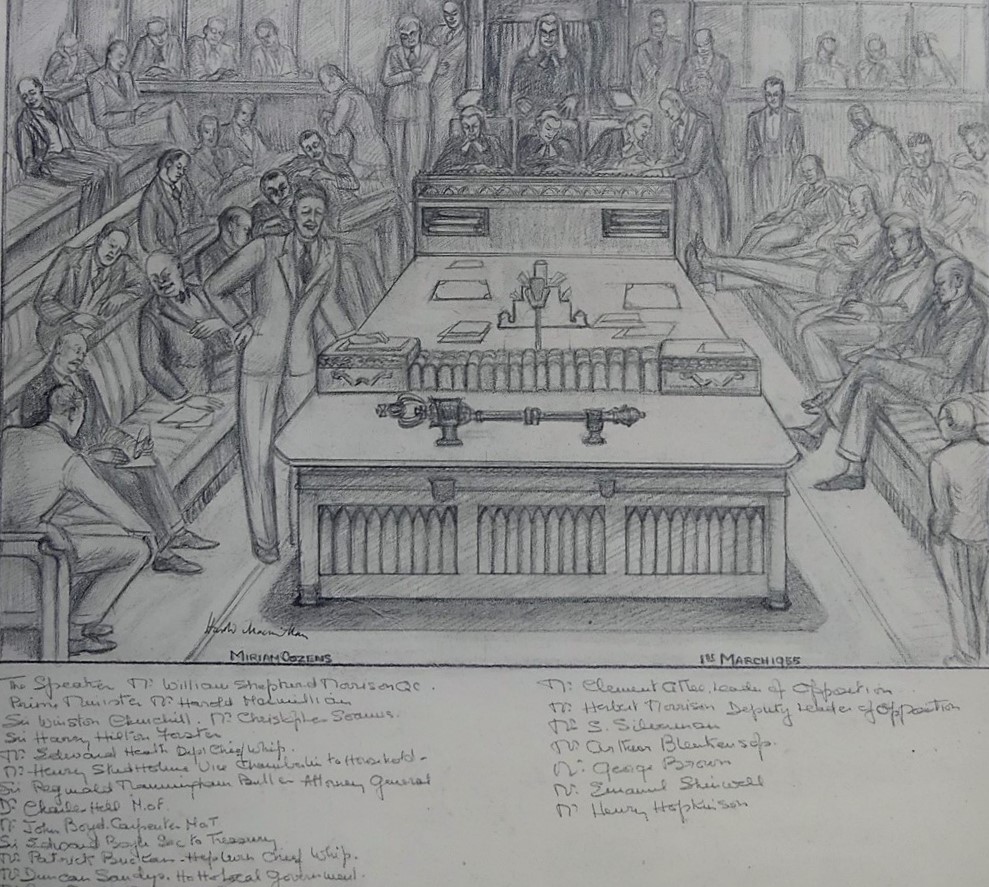 Harold Macmillan
MIRIAM DOZENS
1ST MARCH 1955
The Speaker Mr William Shepherd Morrison QC.
Prime Minister Mr Harold Macmillian
Sir Winston Churchill. Mr Christopher Soames.
Sir Harry Hilton Foster
Mr Edward Heath Dept Chief Whip.
Mr Henry Studholme Vice Chamberlain to Household.
Sir Reginald Manningham Buller Attorney General
Dr Charles Hill M.oF.
Mr John Boyd. Carpenter MoT
Sir Edward Boyle Sec to Treasury
Mr Patrick Buchan-Hepburn Chief Whip.
Mr Duncan Sandys. Local Government.
Mr Clement Attlee, Leader of Opposition
Mr Herbert Morrison Deputy Leader of Opposition
Mr S. Silverman
Mr Arthur Blenkensop.
Mr George Brown
Mr Emanuel Shinwell
Mr Henry Hopkinson